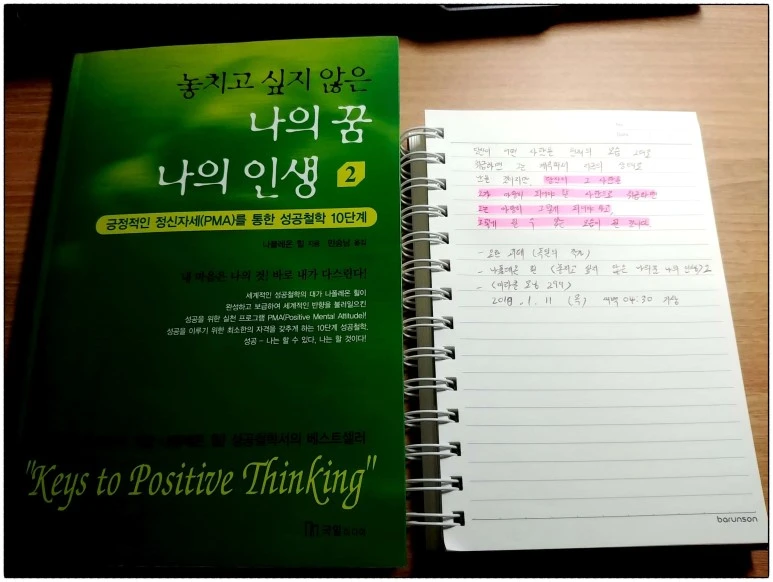 놓치고 싶지 않은
나의 꿈
나의 인생 2
긍정적인 정신자세(PMA)를 통한 성공철학 10단계
나폴레온 힐 지음 민승남 옮김
내 마음은 나의 것! 바로 내가 다스린다!
세계적인 성공철학의 대가 나폴레온 힐이
완성하고 보급하여 세계적인 반향을 불러일으킨
성공을 위한 실천 프로그램 PMA(Positive Mental Attitude)!
성공을 이루기 위한 최소한의 자격을 갖추게 하는 10단계 성공철학.
성공 – 나는 할 수 있다, 나는 할 것이다!
성공철학서의 베스트셀러
"Keys to Positive Thinking"
국일
만약에 어떤 사람을 현재의 모습 그대로
취급하면 그는
당신이 그 사람을
되어야 할 사람으로 취급하면
그는 그렇게 되어
- 요한 괴테 (독일의
- 나폴레온 힐 <놓치고 싶지 않은 나의 꿈 나의 인생> 2
2019. 1. 11 (목) 새벽 04:30 기상
barunson